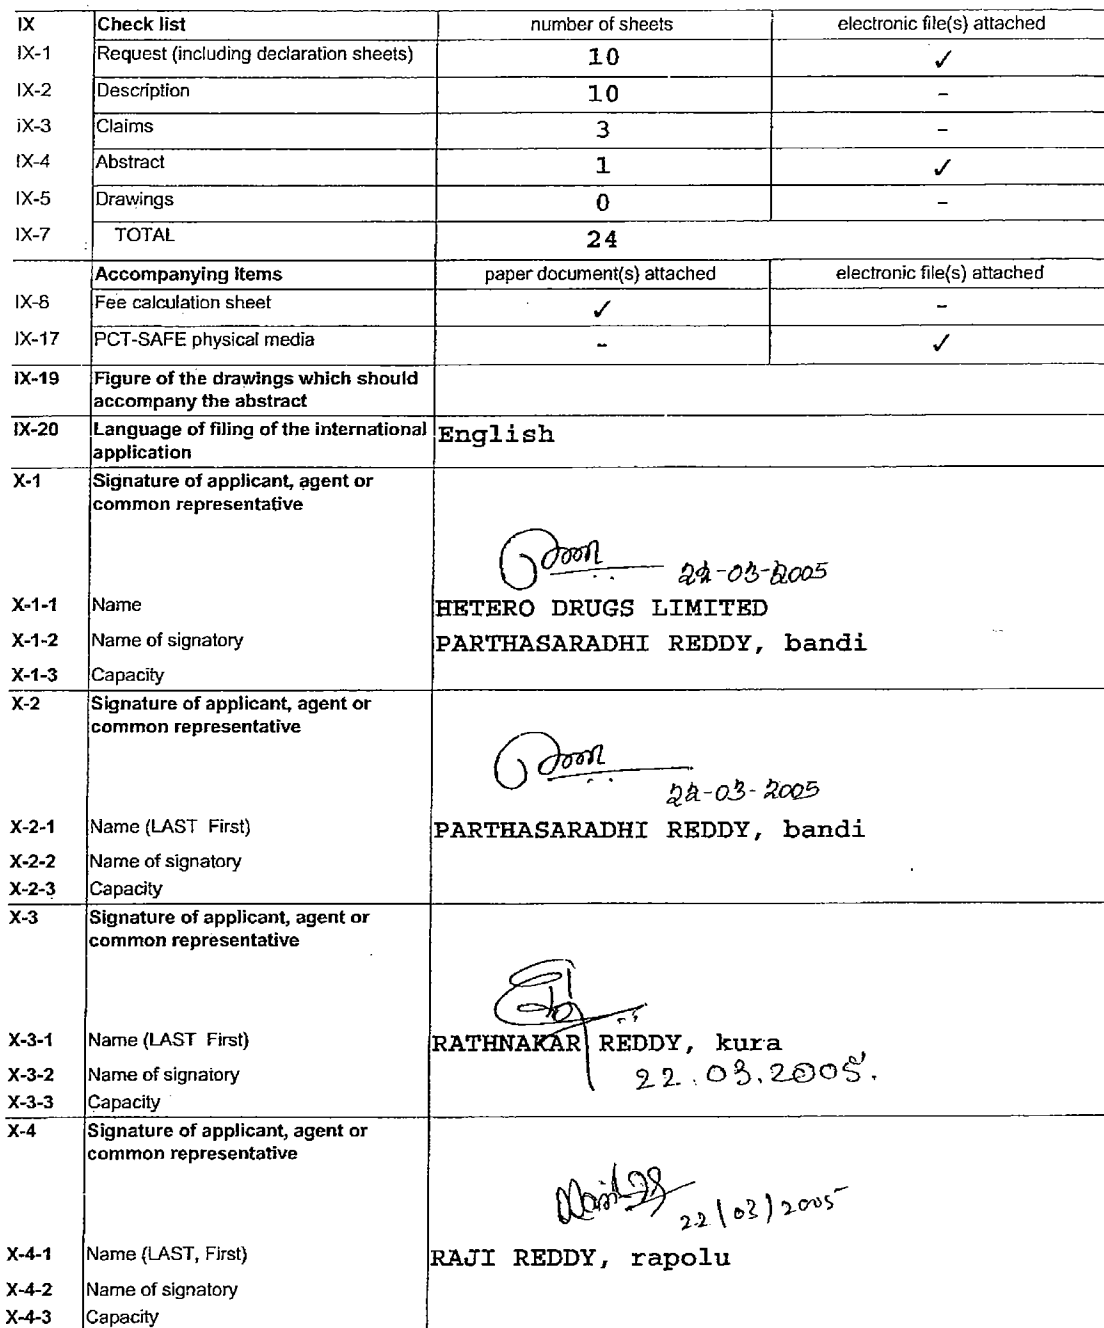 IX Check list number of sheets electronic file(s) attached
IX-1 Request (including declaration sheets) 10 ✓
IX-2 Description 10 -
iX-3 Claims 3 -
IX-4 Abstract 1 ✓
IX-5 Drawings 0 -
IX-7 TOTAL 24
Accompanying Items paper document(s) attached electronic file(s) attached
IX-8 Fee calculation sheet ✓ -
IX-17 PCT-SAFE physical media - ✓
IX-19 Figure of the drawings which should
accompany the abstract
IX-20 Language of filing of the international English
application
X-1 Signature of applicant, agent or
common representative
22-03-2005
X-1-1 Name HETERO DRUGS LIMITED
X-1-2 Name of signatory PARTHASARADHI REDDY, bandi
X-1-3 Capacity
X-2 Signature of applicant, agent or
common representative
22-03-2005
X-2-1 Name (LAST First) PARTHASARADHI REDDY, bandi
X-2-2 Name of signatory
X-2-3 Capacity
X-3 Signature of applicant, agent or
common representative
X-3-1 Name (LAST First) RATHNAKAR REDDY, kura
X-3-2 Name of signatory 22.03.2005.
X-3-3 Capacity
X-4 Signature of applicant, agent or
common representative
22/03/2005
X-4-1 Name (LAST, First) RAJI REDDY, rapolu
X-4-2 Name of signatory
X-4-3 Capacity